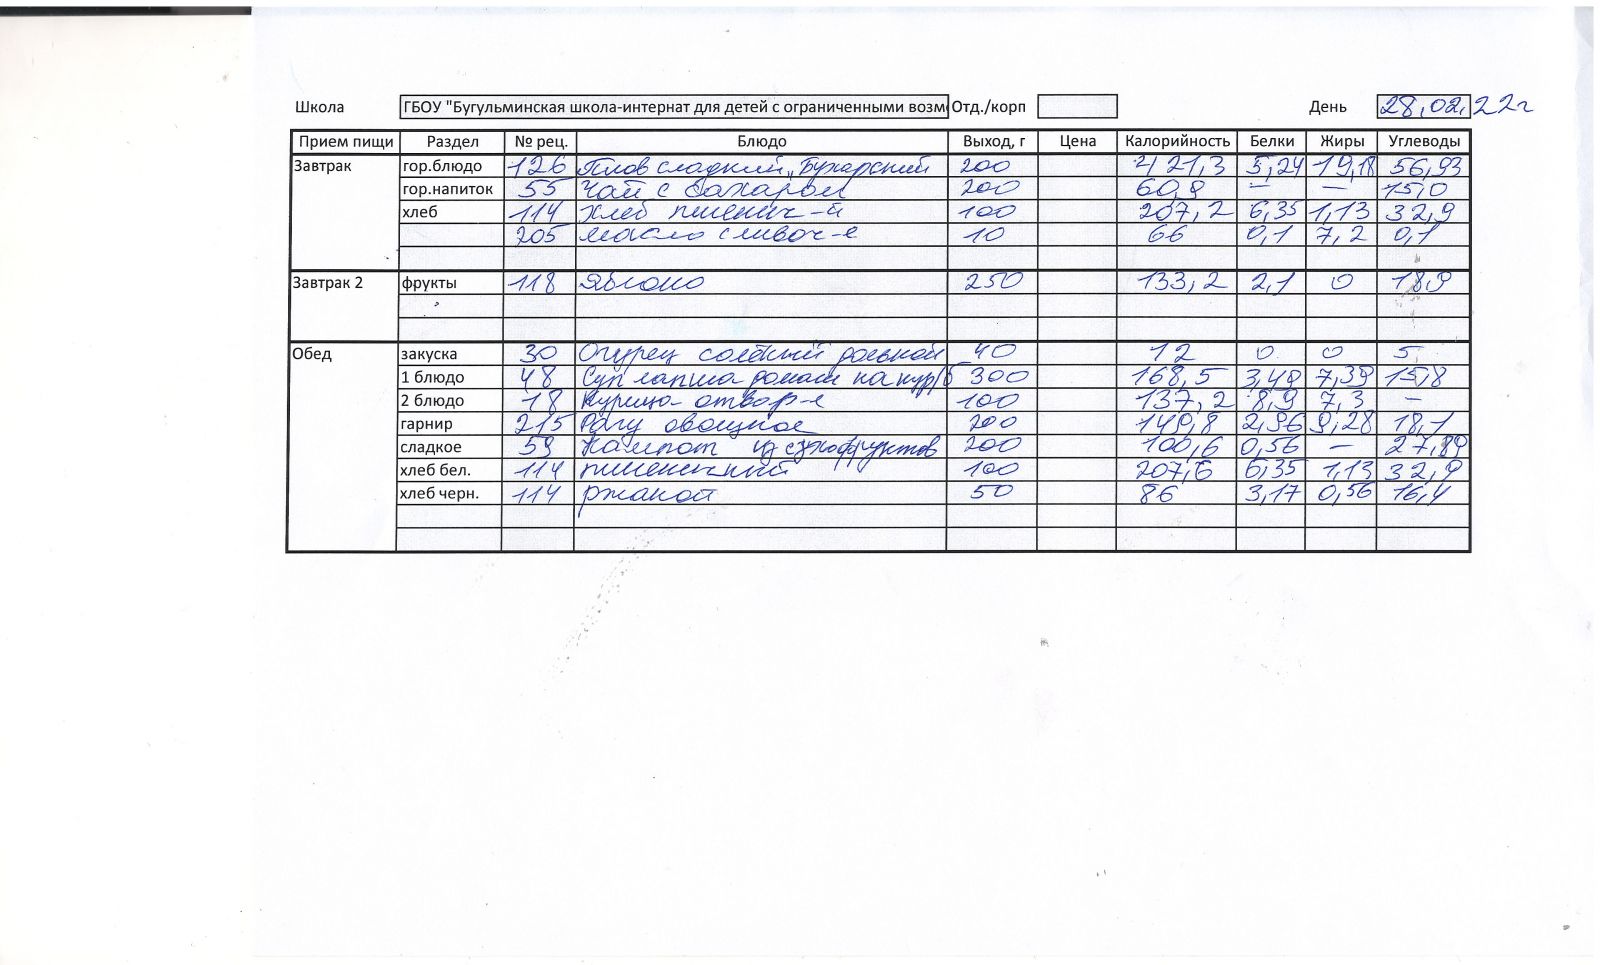 Школа ГБОУ "Бугульминская школа-интернат для детей с ограниченными возм Отд./корп День 28,02,22г
Прием пищи Раздел № рец. Блюдо Выход, г Цена Калорийность Белки Жиры Углеводы
Завтрак гор.блюдо 126 Плов сладкий „Бухарский 200 421,3 5,24 19,18 56,93
гор.напиток 55 Чай с сахаром 200 60,8 — — 15,0
хлеб 114 Хлеб пшенич-й 100 207,2 6,35 1,13 32,9
205 масло сливоч-е 10 66 0,1 7,2 0,1
Завтрак 2 фрукты 118 Яблоко 250 133,2 2,1 0 18,9
Обед закуска 30 Огурец солёный долькой 40 12 0 0 5,
1 блюдо 48 Суп лапша домаш на кур/б 300 168,5 3,49 7,39 15,8
2 блюдо 18 Курица отвар-я 100 137,2 8,9 7,3 —
гарнир 215 Рагу овощное 200 149,8 2,96 9,28 18,1
сладкое 59 Компот из сухофруктов 200 100,6 0,56 — 27,89
хлеб бел. 114 пшеничный 100 207,6 6,35 1,13 32,9
хлеб черн. 114 ржаной 50 86 3,17 0,56 16,4